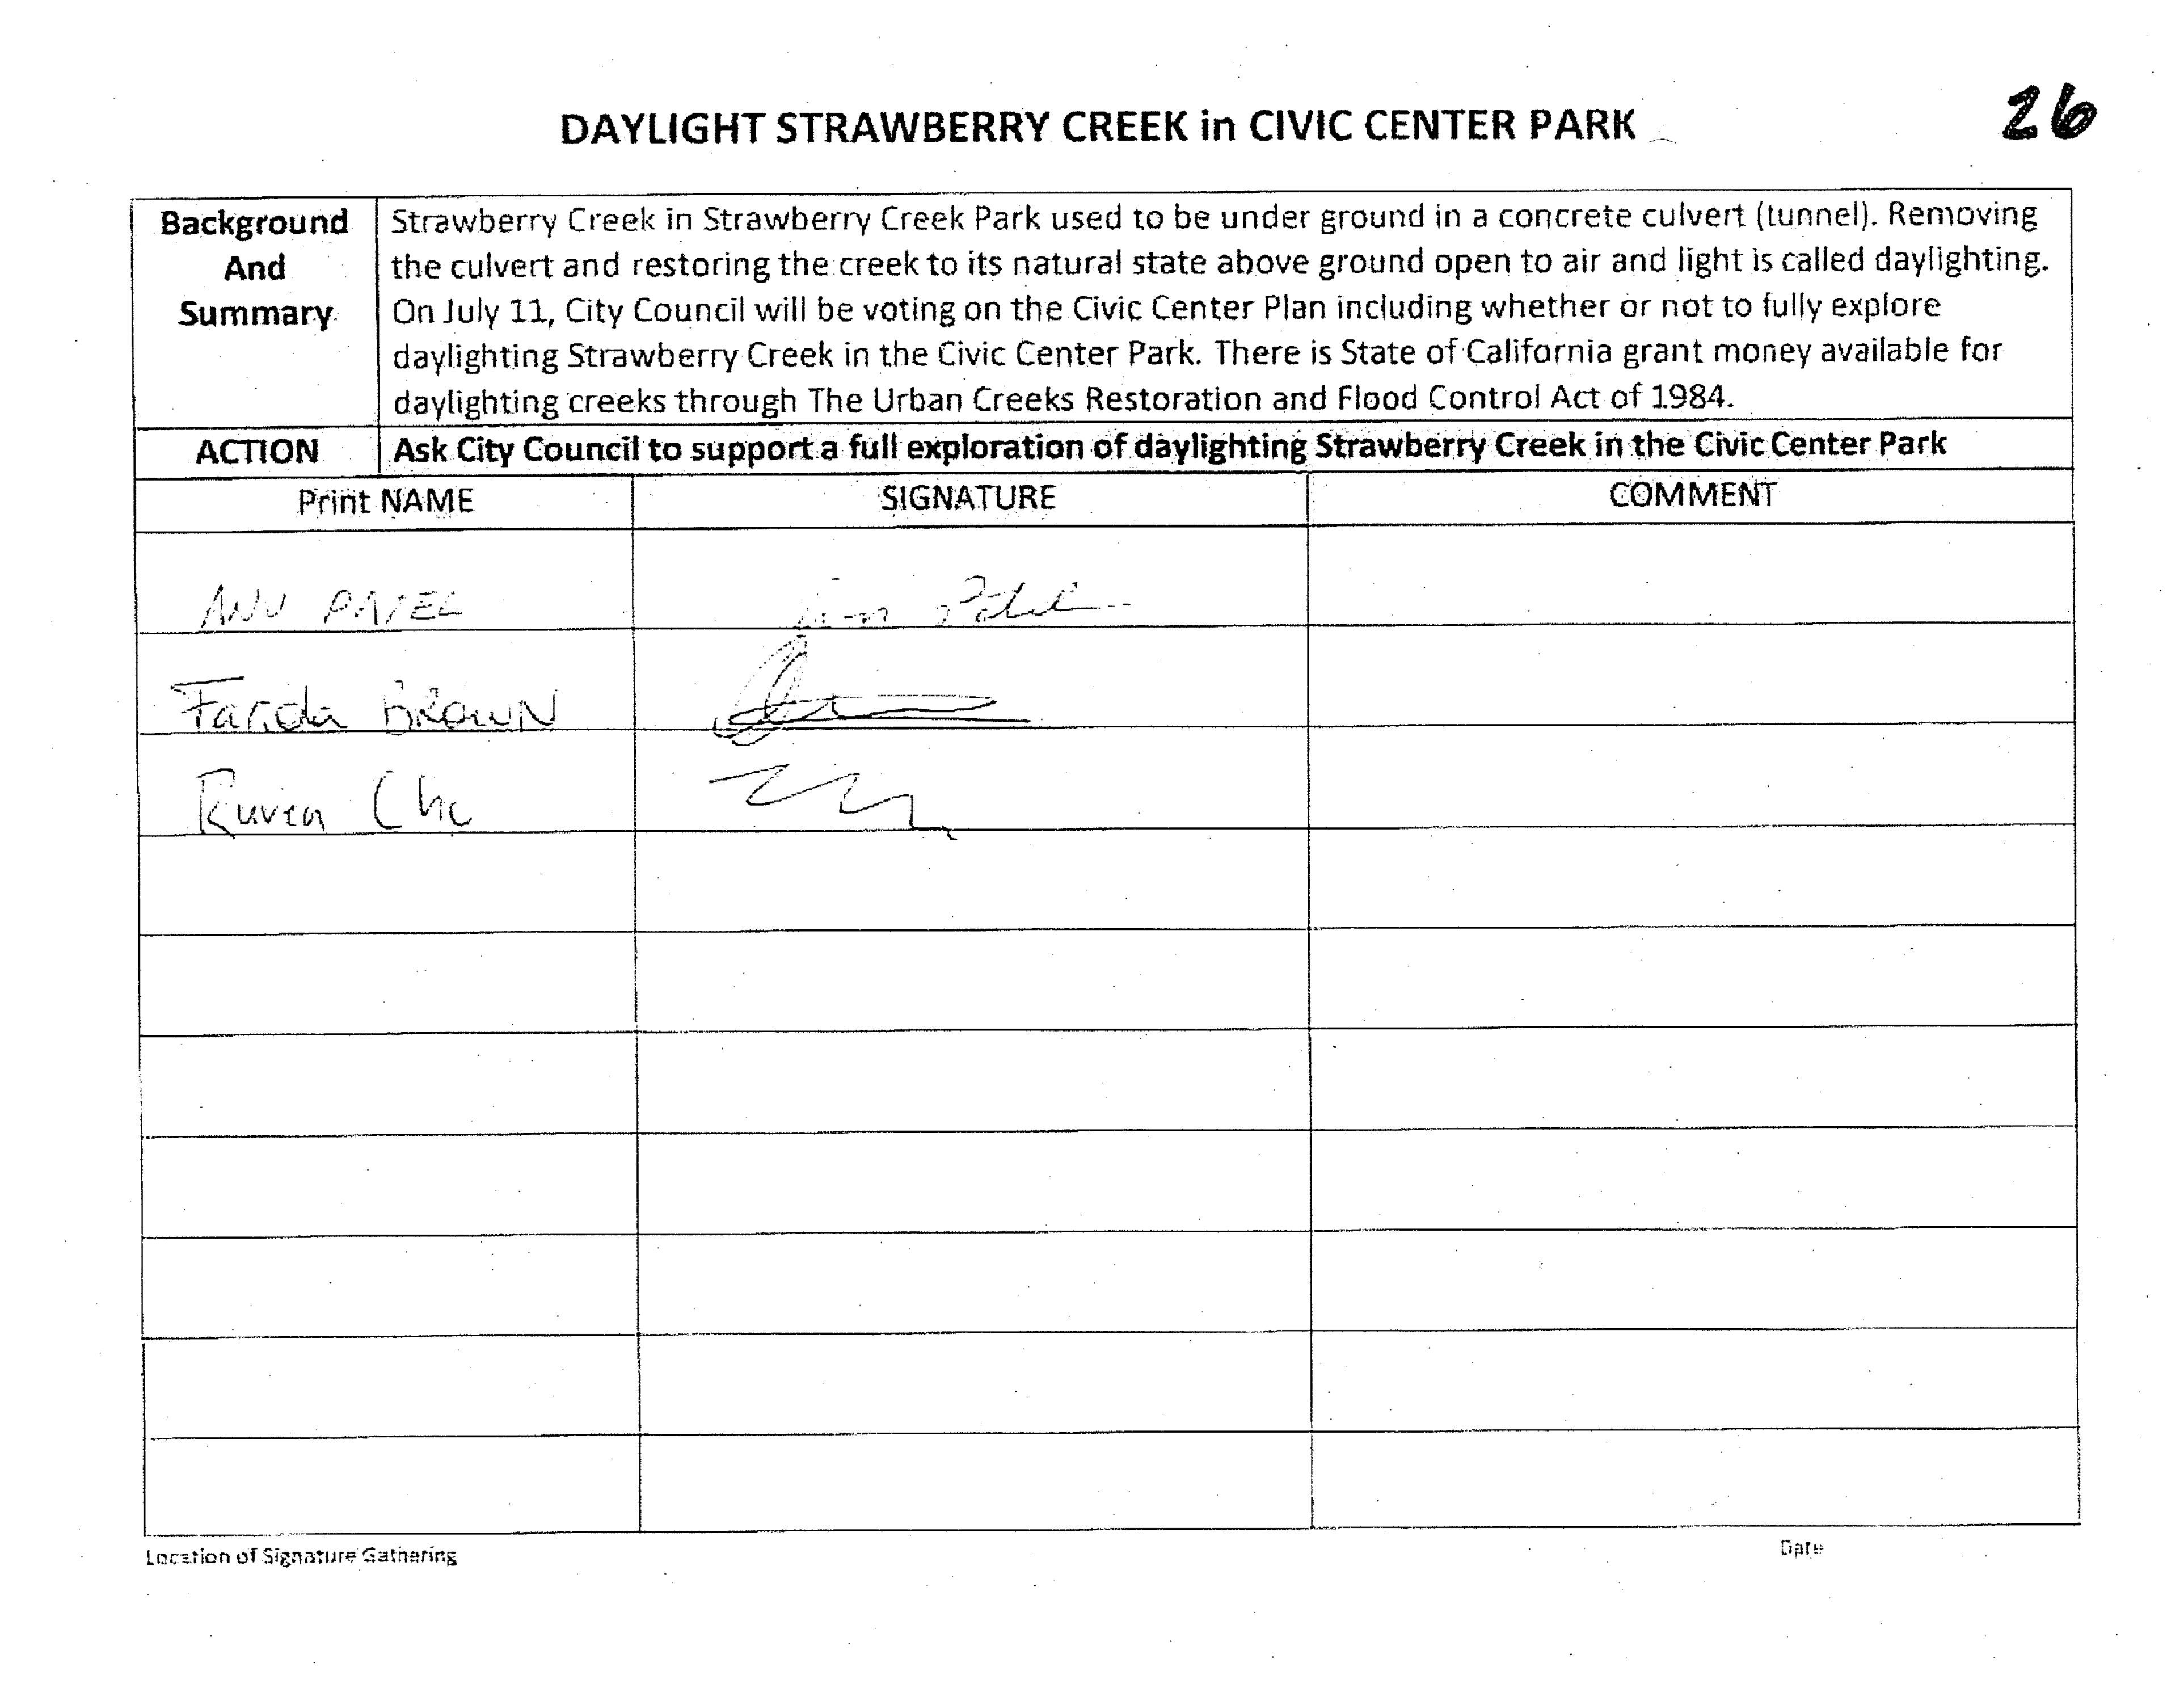 DAYLIGHT STRAWBERRY CREEK in CIVIC CENTER PARK
26
Background And Summary
Strawberry Creek in Strawberry Creek Park used to be under ground in a concrete culvert (tunnel). Removing
the culvert and restoring the creek to its natural state above ground open to air and light is called daylighting.
On July 11, City Council will be voting on the Civic Center Plan including whether or not to fully explore
daylighting Strawberry Creek in the Civic Center Park. There is State of California grant money available for
daylighting creeks through The Urban Creeks Restoration and Flood Control Act of 1984.
ACTION Ask City Council to support a full exploration of daylighting Strawberry Creek in the Civic Center Park
Print NAME SIGNATURE COMMENT
ANU PATEL
Farida BROWN
Ruven
Location of Signature Gathering Date